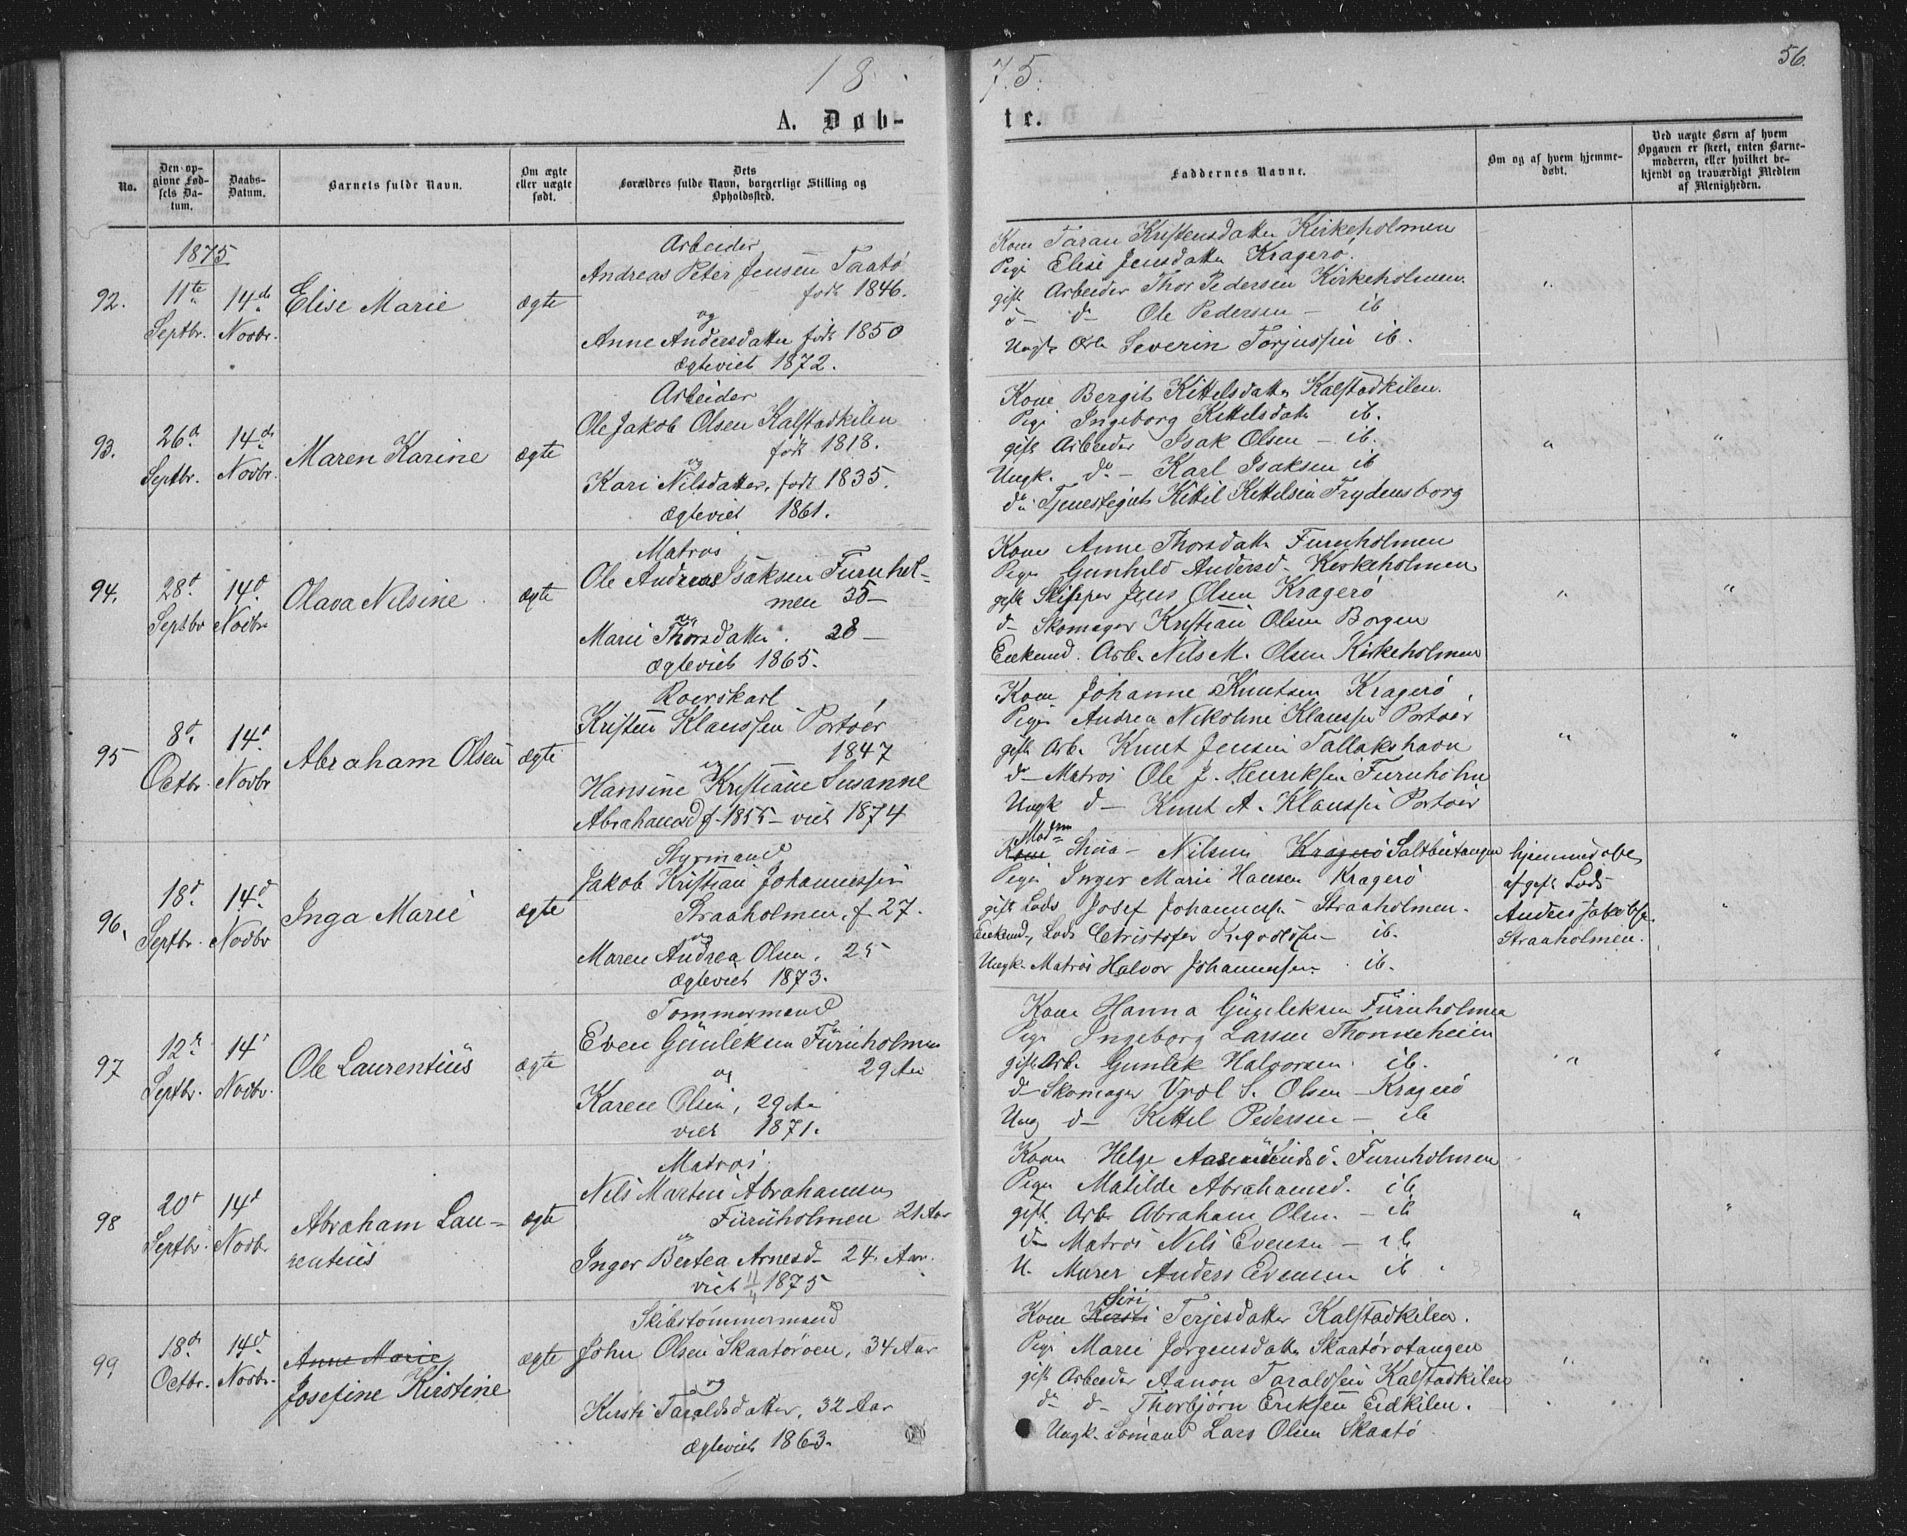 18
75.
56.
A. Døb-
te.
No.
Den op-
givne Fød-
sels Da-
tum.
Daabs-
Datum.
Barnets fulde Navn.
Om ægte
eller uægte
født.
Dets
Forældres fulde Navn, borgerlige Stilling og
Opholdssted.
Faddernes Navne.
Om og af hvem hjemme-
døbt.
Ved uægte Børn af hvem
Opgaven er skeet, enten Barne-
moderen, eller hvilket be-
kjendt og troværdigt Medlem
af Menigheden.
1875
92.
11te
Septbr.
14de
Novbr.
Elise Marie
ægte
Arbeider
Andreas Peter Jensen Taatø
født 1846.
og
Anne Andersdatter født 1850
Ægteviet 1872.
Kone Taran Kristensdatter Kirkeholmen
Pige Elise Jensdatter Kragerø.
gift Arbeider Thor Pedersen Kirkeholmen.
d- d- Ole Pedersen - ib
Ungk. Arb Severin Torjussen ib.
93.
26d
Septbr.
14de
Novbr.
Maren Karine
ægte
Arbeider
Ole Jakob Olsen Kalstadkilen
født 1818.
og
Kari Nilsdatter, født 1835.
Ægteviet 1861.
Kone Bergit Kittelsdatter Kalstadkilen.
Pige Ingeborg Kittelsdatt ib.
gift Arbeider Isak Olsen - ib.
Ungk. do - Karl Isaksen ib
do Tjenestegut Kittil Kittelsen Frydensborg
94.
28d
Septbr
14d
Novbr
Olava Nilsine
ægte
Matros
Ole Andreas Isaksen Furuhol-
men 35-
og
Marie Thorsdatter. 28-
Ægteviet 1865.
Kone Anne Thorsdatt Furuholmen
Pige Gunhild Andersd- Kirkeholmen
gift Skipper Jens Olsen Kragerø
d- Skomager Kristian Olsen Borgen
Enkemd. Arb. Nils M. Olsen Kirkeholmen
95
8d
Octbr.
14d
Novbr
Abraham Olsen
ægte
Roerskarl
Kristen Klaussen Portøer
1847
og
Hansine Kristiane Susanne
Abrahamsd f. 1855 - viet 1874
Kone Johanne Knutsen Kragerø,
Pige Andrea Nikoline Klaussen Portøer
gift Arb. Knut Jensen Tallakshavn
d- Matros Ole J. Henriksen Furuholm
Ungk d- Knut A. Klaussen Portøer
96.
18d
Septbr.
14d
Novbr
Inga Marie
ægte
Styrmand
Jakob Kristian Johannessen
Straaholmen, f. 27.
og
Maren Andrea Olsen, 25
Ægteviet 1873.
Madm
Kone Stina - Nilsen Kragerø Saltbutangen
Pige Inger Marie Hansen Kragerø
gift Lods Josef Johannessen Straaholmen.
Enkemd, Lods Christofer ib.
Ungk. Matros Halvor Johannessen ib.
hjemmedøbt
af gift Lods
Anders Jakobsen
Straaholmen.
97
12te
Septbr.
14d
Novbr.
Ole Laurentius
ægte
Tømmermand
Even Gunleksen Furuholmen
og 29 Aar
Karen Olsen, 29 Aar
viet 1871.
Kone Hanna Gunleksen Furuholmen
Pige Ingeborg Larsen Thonneheien
gift Arb. Gunlek Halvorsen ib.
d- Skomager Vrol S. Olsen - Kragerø
Ung d- Kittel Pedersen - ib
98
20d
Septbr.
14d
Novbr
Abraham Lau-
rentius
ægte
Matros
Nils Martin Abrahamsen
Furuholmen 21 Aar
og
Inger Bertea Arnesd- 24 Aar.
viet 1875
Kone Helge Aasmundsd. Furuholmen
Pige Matilde Abrahamsd. ib
gift. Arb Abraham Olsen - ib
d- Matros Nils Evensen - ib
U. Murer Anders Evensen ib.
99
18d
Octbr.
14d
Novbr.
Anne Marie
Josefine Kirstine
ægte
Skibstømmermand
John Olsen Skaatøroen, 34 Aar
og
Kirsti Taraldsdatter, 32 Aar
Ægteviet 1863.
Siri
Kone Kirsti Terjesdatter Kalstadkilen.
Pige Marie Jørgensdatter Skaatørotangen
gift Arbeider Aanon Taraldsen Kalstadkilen
do d- Thorbjørn Eriksen Eidkilen.
Ungk. Sømand Lars Olsen Skaatø